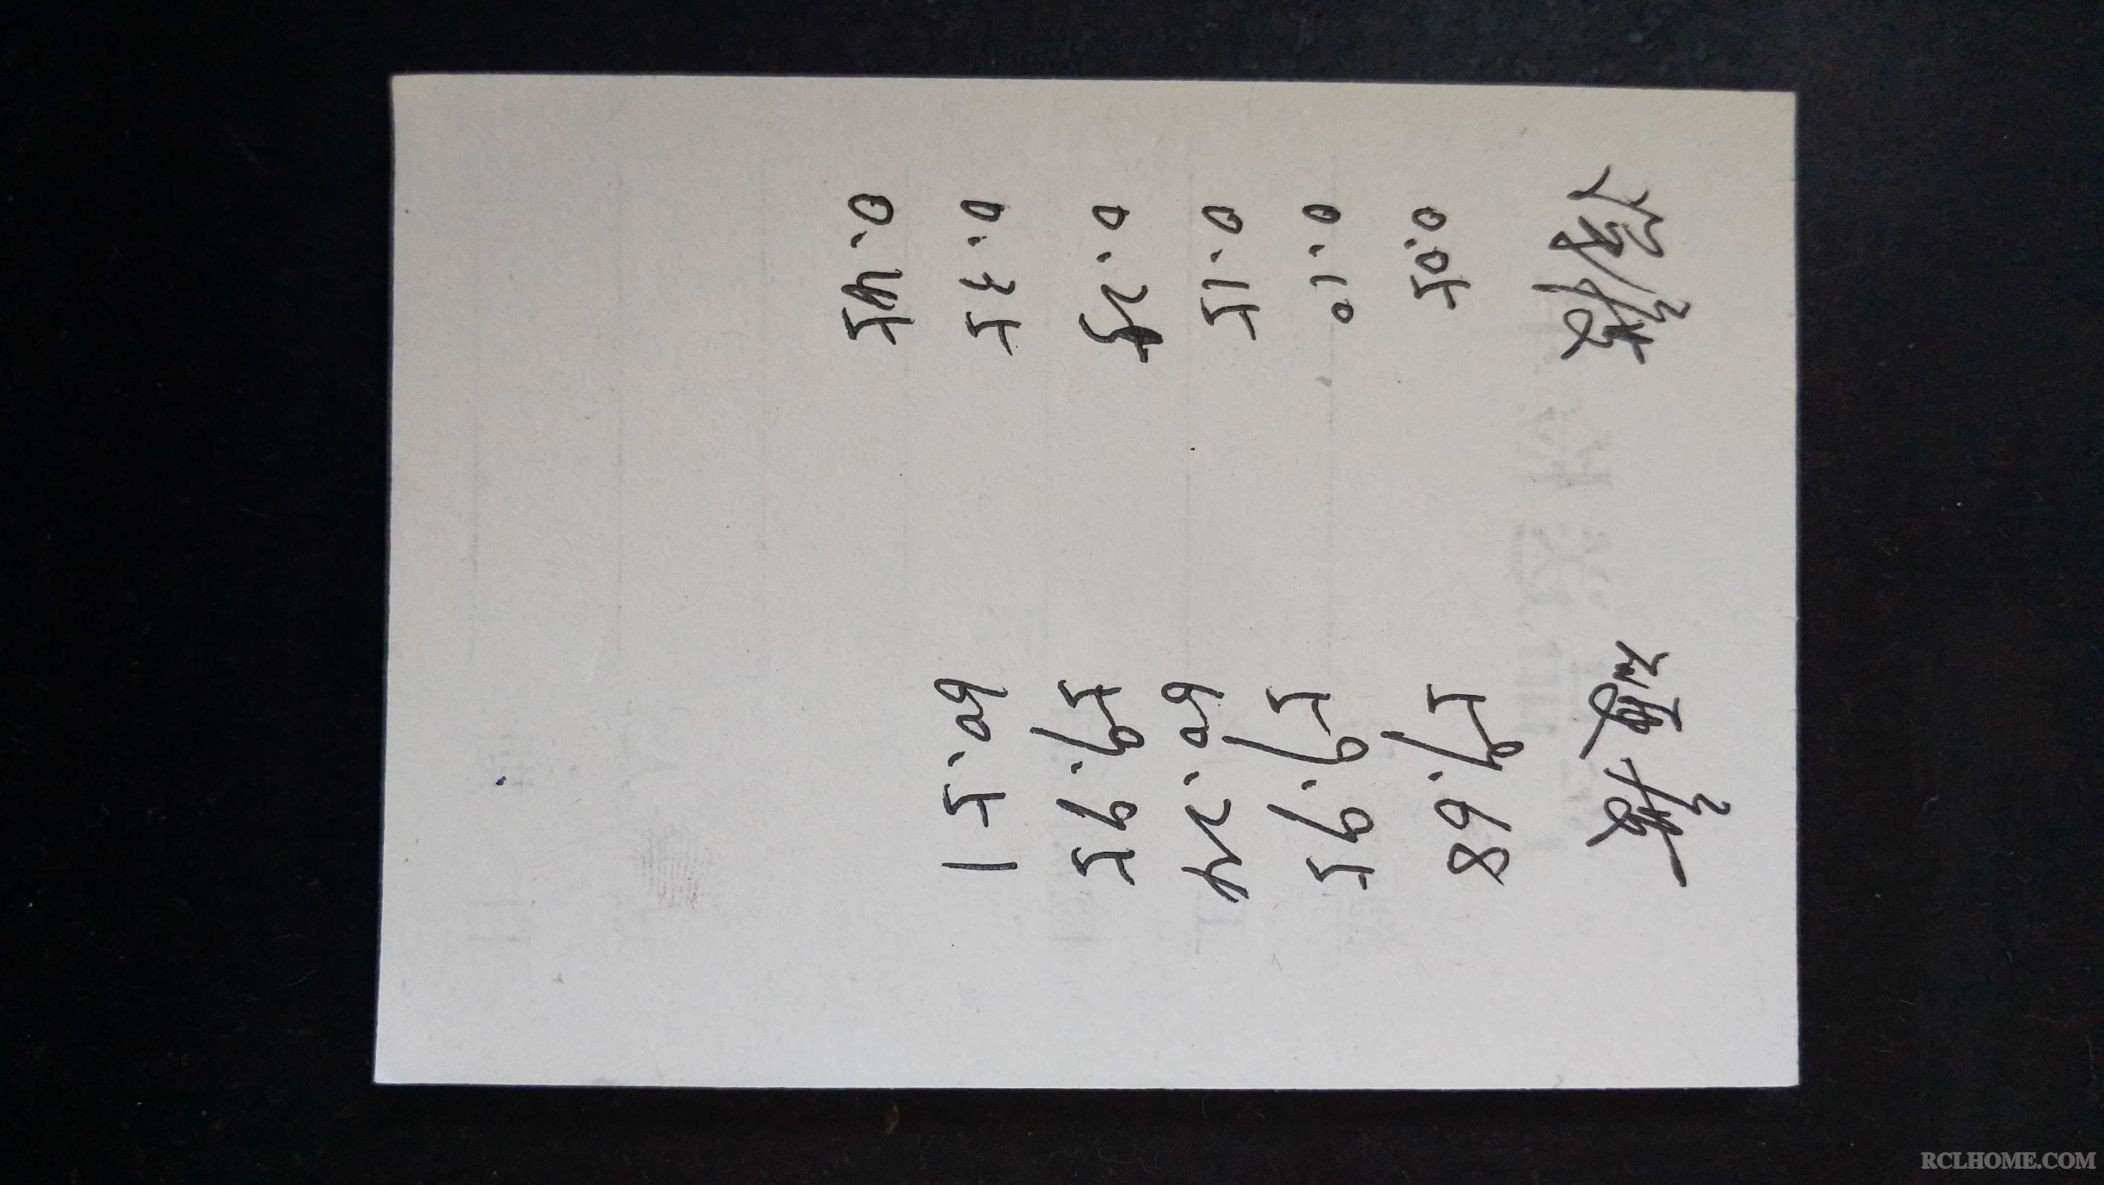 深度 硬度
0.05 59.68
0.10 59.95
0.15 60.24
0.25 59.95
0.35 60.51
0.45
RCLHOME.COM